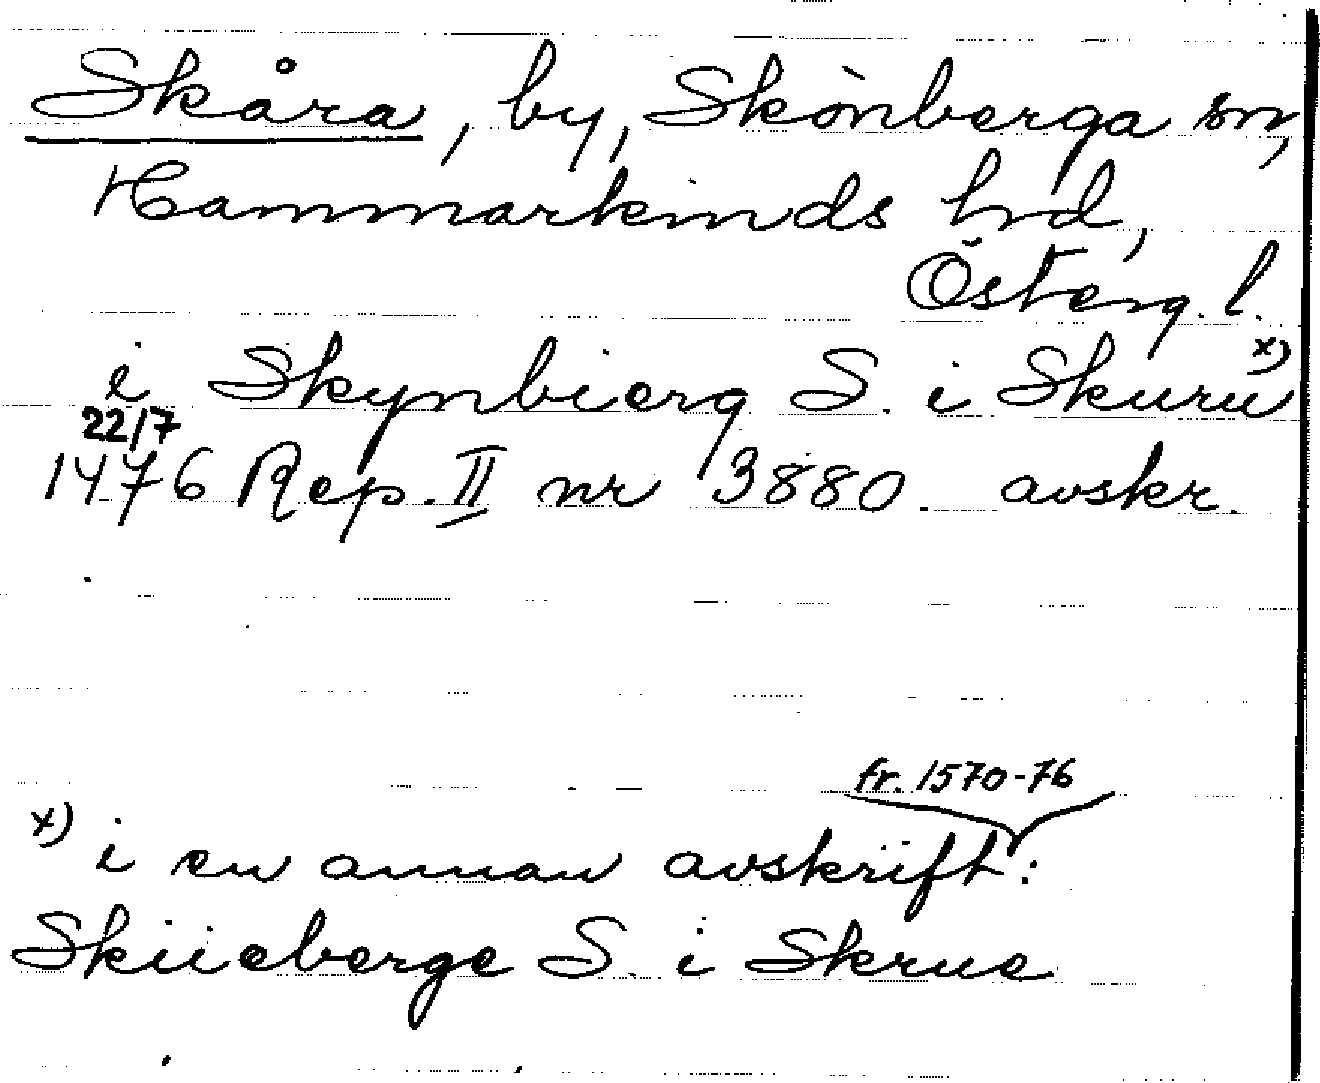 Skåra, by, Skönberga sn,
Hammarkinds hrd,
Österg. l.
i Skynbierg S. i Skuru x)
22/7
1476 Rep. II nr 3880. avskr.
fr. 1570-76
x) i en annan avskrift:
Skiieberge S. i Skrue